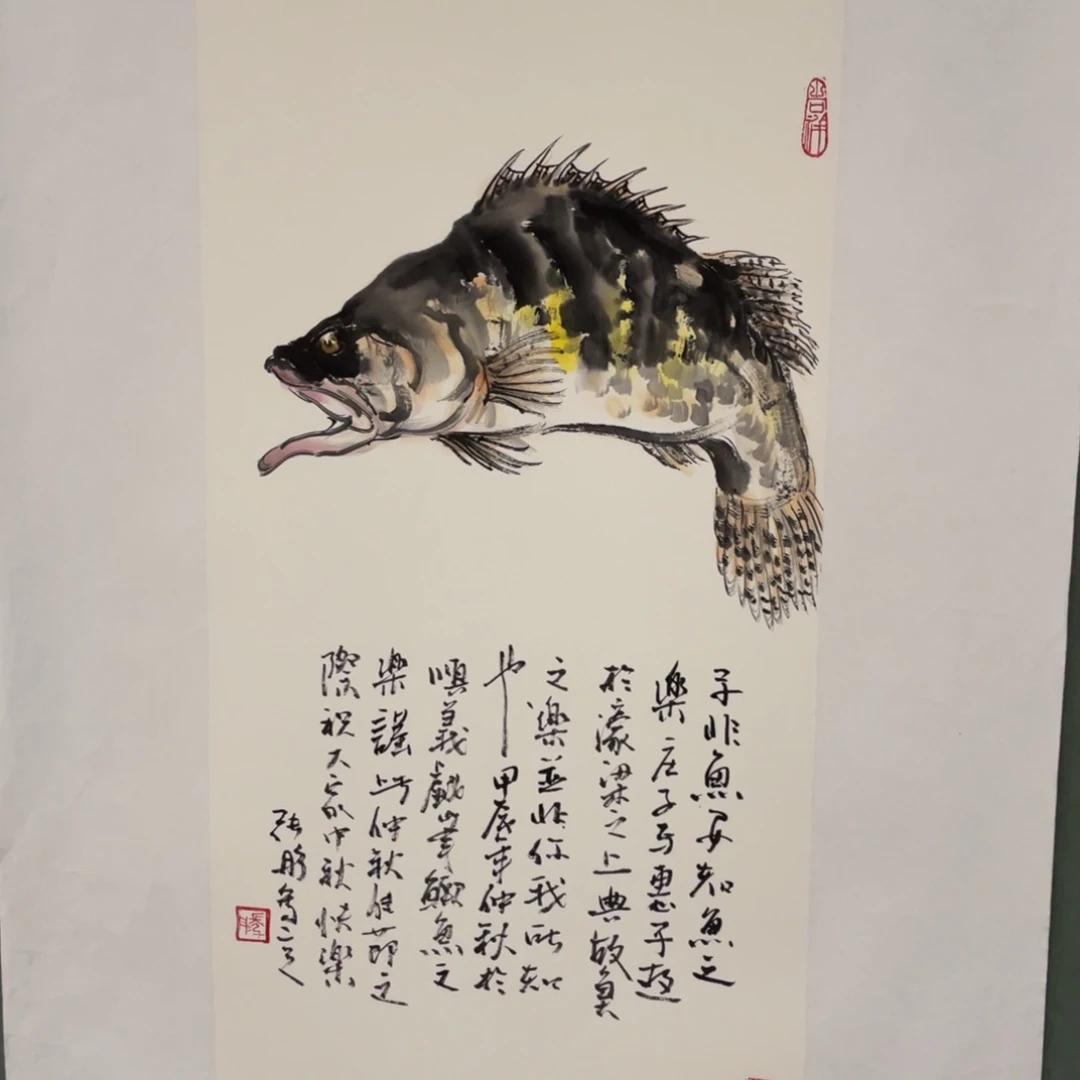 吉祥
子非魚安知魚之
樂庄子与惠子遊
於濠梁之上典故魚
之樂並非你我所知
也甲辰年仲秋於
順義戲筆鱖魚之
樂謹此仲秋佳節之
際祝大家中秋快樂
張